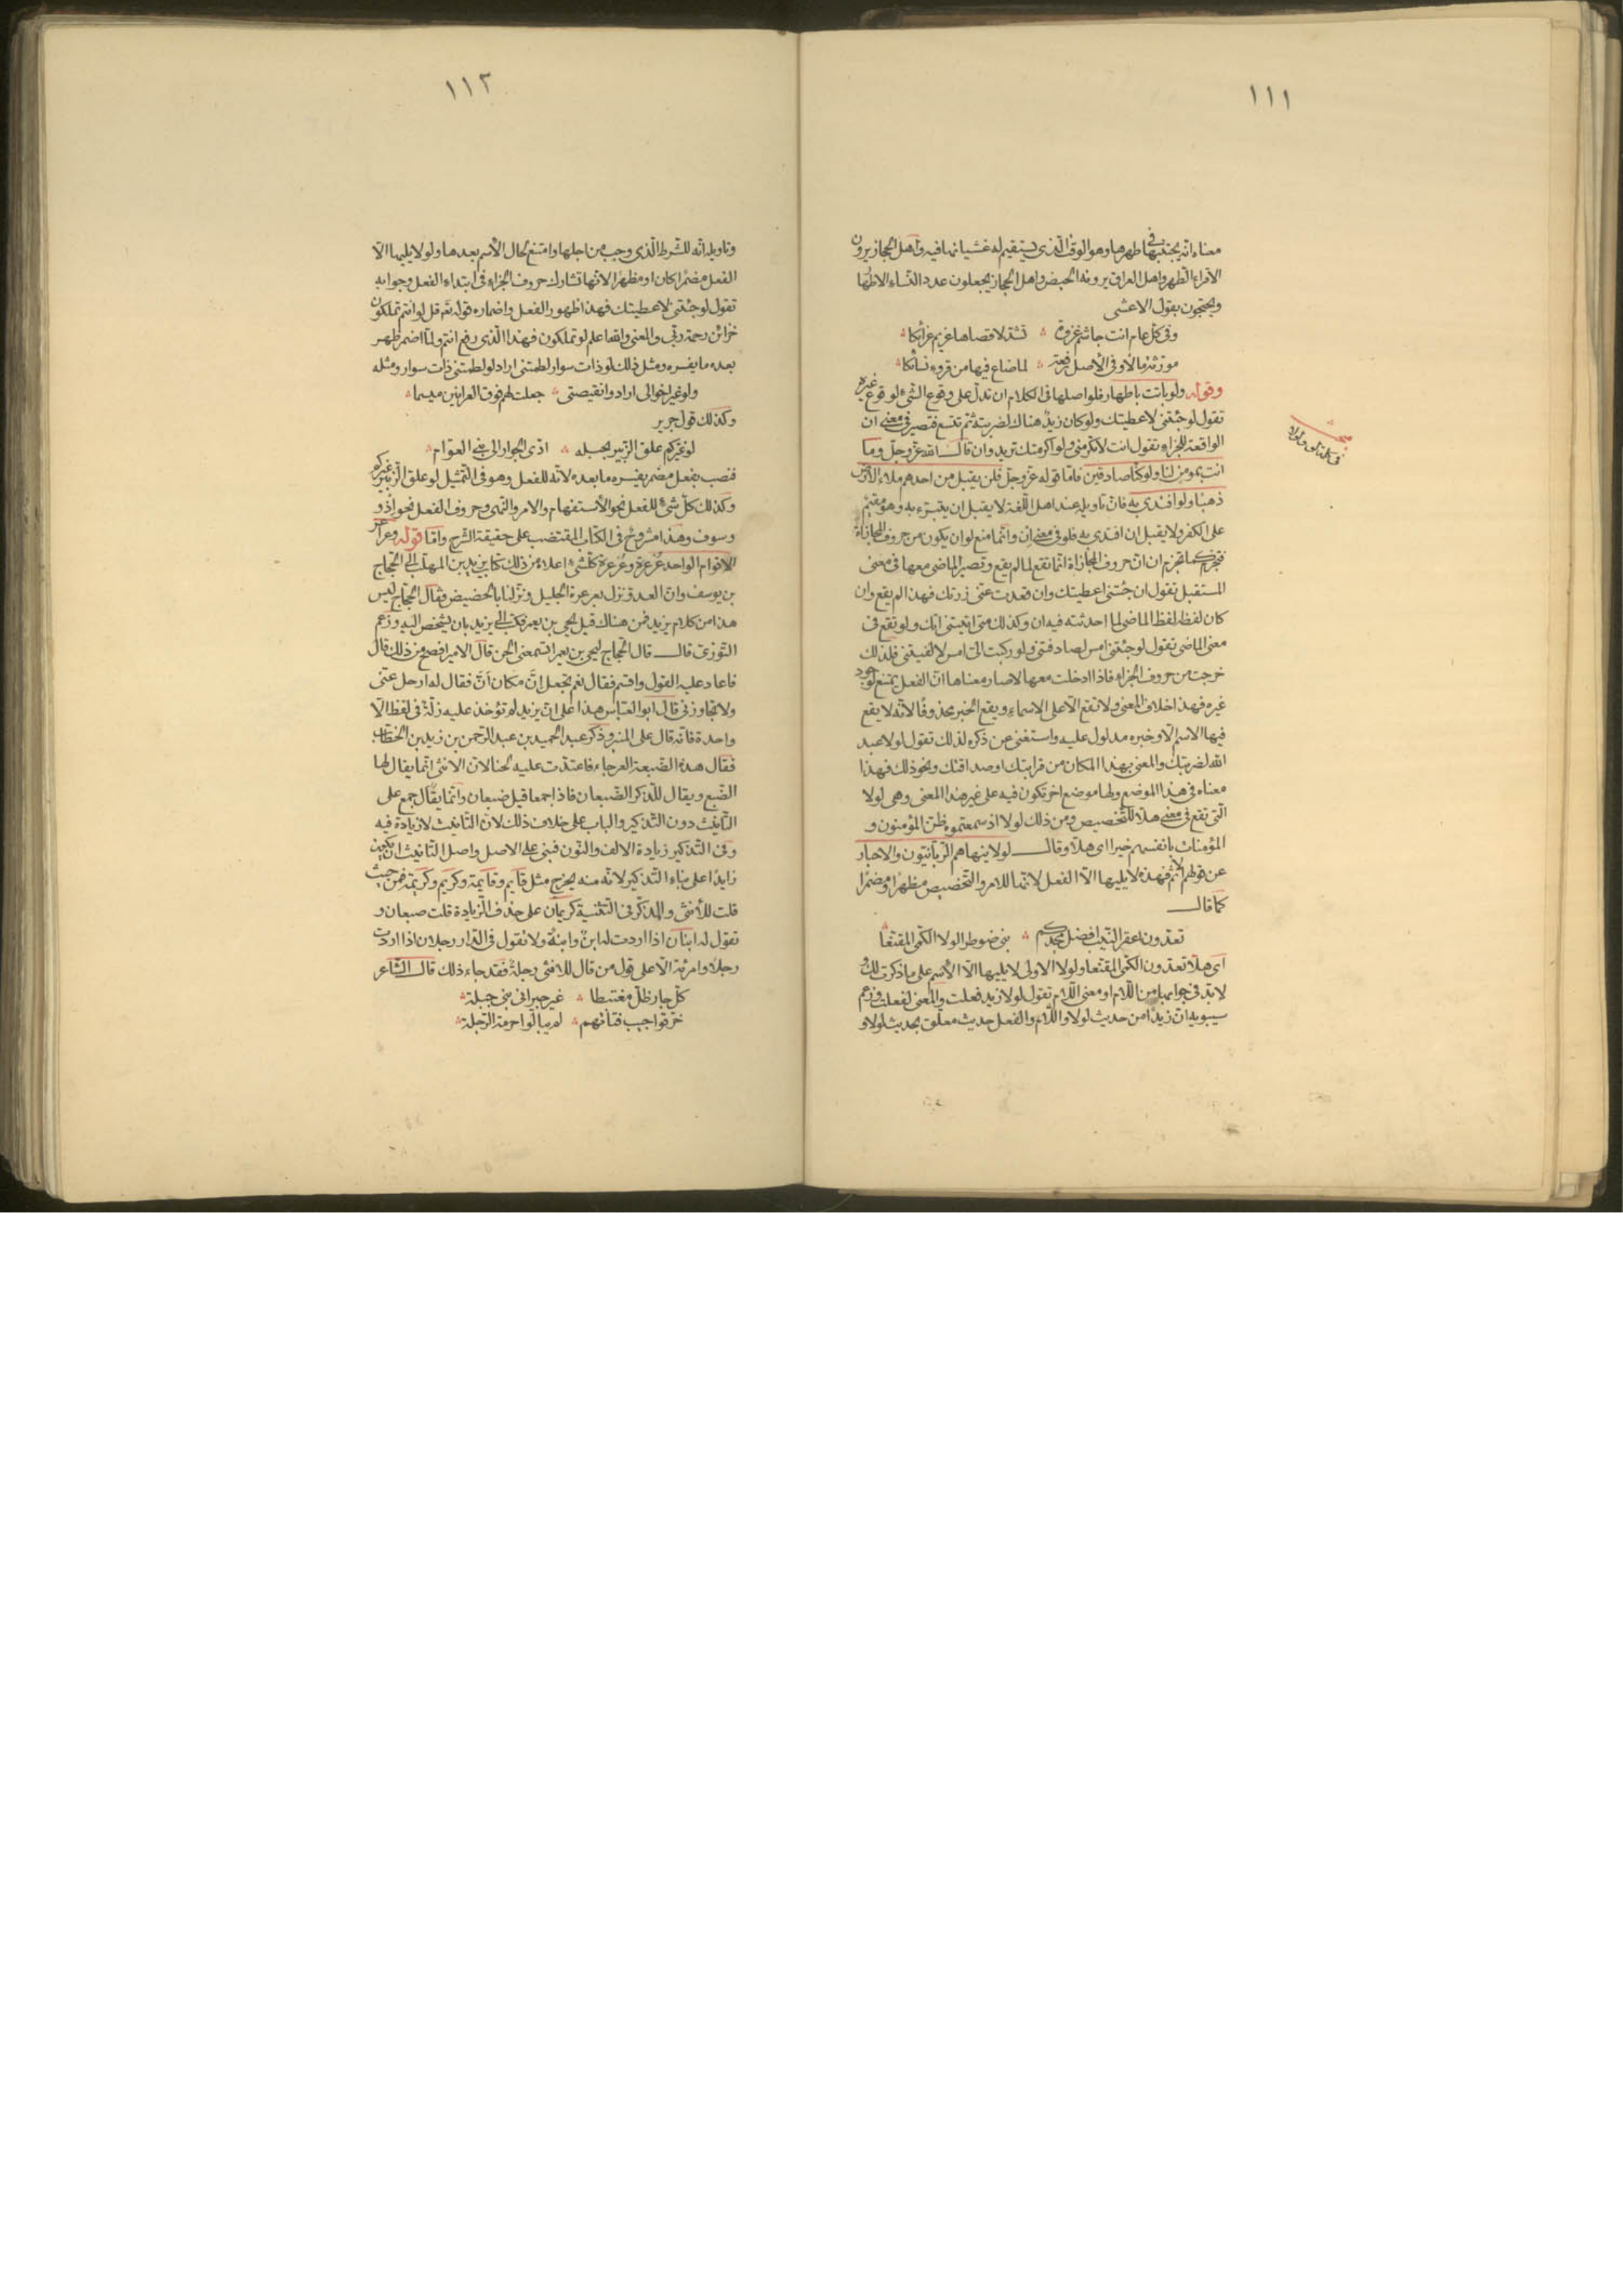 ١١١
معناه انه يجتنبها في طهرها وهو الوقت الذى يستقيم له غشيانها فيه واهل الحجاز يرون
الاقراء الطهر واهل العراق يرونه الحيض واهل الحجاز يجعلون عدد النساء الاطهار
ويحتجون بقول الاعشى
وفى كل عام انت جاشم غزوة ؞ تشد لاقصاها عزيم عزائكا ؞
مورثة مالا وفى الاصل رفعة ؞ لما ضاع فيها من قروء نسائكا ؞
وقوله ولو باتت باطهار فلو اصلها فى الكلام ان تدل على وقوع الشىء لوقوع غيره
تقول لو جئتنى لاعطيتك ولو كان زيد هناك لضربته ثم تتسع فتصير فى معنى ان
الواقعة للجزاء تقول انت لا تكرمنى ولو اكرمتك تريد وان قال الله عز وجل وما
انت بمومن لنا ولو كنا صادقين فاما قوله عز وجل فلن يقبل من احدهم ملاء الارض
ذهبا ولو افتدى به فان تاويله عند اهل اللغة لا يقبل ان يتبرء به وهو مقيم
على الكفر ولا يقبل ان افتدى به فلو فى معنى ان وانما منع لو ان يكون من حروف المجازاة
فتجزم كما تجزم ان ان حروف المجازاة انما تقع لما لم يقع وتصير الماضى معها فى معنى
المستقبل تقول ان جئتنى اعطيتك وان قعدت عنى زرتك فهذا لم يقع وان
كان لفظه لفظ الماضى لما احدثته فيه ان وكذلك متى اتيتنى اتك ولو تقع فى
معنى الماضى تقول لو جئتنى امس لصادفتنى ولو ركبت الى امس لالفيتنى فلذلك
خرجت من حروف الجزاء فاذا ادخلت معها لا صار معناها ان الفعل يمتنع لوجود
غيره فهذا خلاف المعنى ولا تقع الا على الاسماء ويقع الخبر محذوفا لانه لا يقع
فيها الاسم الا وخبره مدلول عليه واستغنى عن ذكره لذلك تقول لولا عبد
الله لضربتك والمعنى بهذا المكان من قرابتك او صداقتك ونحو ذلك فهذا
معناه فى هذا الموضع ولها موضع اخر تكون فيه على غير هذا المعنى وهى لولا
التى تقع فى معنى هلا للتخصيص ومن ذلك لولا اذ سمعتموه ظن المؤمنون و
المؤمنات بانفسهم خيرا اى هلا وقال لولا ينهاهم الربانيون والاحبار
عن قولهم الاثم فهذه لا يليها الا الفعل لانها للامر والتخصيص مظهرا او مضمرا
كما قال
تعدون عقر النيب افضل مجدكم ؞ بنى ضوطر الولا الكمى المقنعا
اى هلا تعدون الكمى المقنعا ولولا الاولى لا يليها الا الاسم على ما ذكرت لك و
لا بد فى جوابها من اللام او معنى اللام تقول لولا زيد فعلت والمعنى لفعلت وزعم
سيبويه ان زيدا من حديث لولا واللام والفعل حديث معلق بحديث لولا و
١١٢
وتاويله انه للشرط الذى وجب من اجلها وامتنع لحال الاسم بعدها ولو لا يليها الا
الفعل مضمرا كان او مظهرا لانها تشارك حروف الجزاء فى ابتداء الفعل وجوابه
تقول لو جئتنى لاعطيتك فهذا ظهور الفعل واضماره قوله تعالى قل لو انتم تملكون
خزائن رحمة ربى والمعنى والله اعلم لو تملكون فهذا الذى رفع انتم ولما اضمر ظهر
بعده ما يفسره ومثل ذلك لو ذات سوار لطمتنى اراد لو لطمتنى ذات سوار ومثله
ولو غير اخوالى ارادوا نقيصتى ؞ جعلت لهم فوق العرانين ميسما ؞
وكذلك قول جرير
لو غيركم علق الزبير بحبله ؞ ادى الجوار الى بنى العوام ؞
فنصب بفعل مضمر يفسره ما بعده لانه للفعل وهو فى التمثيل لو علق الزبير غيركم
وكذلك كل شىء للفعل نحو الاستفهام والامر والنهى وحروف الفعل نحو اذ و
وسوف وهذا مشروح فى الكتاب المقتضب على حقيقة الشرح واما قوله وعراعر
الاقوام الواحد عرعرة وعرعرة كل شىء اعلاه من ذلك كتاب يزيد بن المهلب الى الحجاج
بن يوسف وان العدو نزل بعرعرة الجبل ونزلنا بالحضيض فقال الحجاج ليس
هذا من كلام يزيد فمن هناك قيل يحيى بن يعمر فكتب الى يزيد بان يشخص اليه وزعم
التوزى قال قال الحجاج ليحيى بن يعمر اتسمعنى الحن قال الامير افصح من ذلك قال
فاعاد عليه القول واقسم فقال نعم تجعل ان مكان ان فقال له ارحل عنى
ولا تجاورنى قال ابو العباس هذا على ان يزيد لم تؤخذ عليه زلة فى لفظ الا
واحدة فانه قال على المنبر وذكر عبد الحميد بن عبد الرحمن بن زيد بن الخطاب
فقال هذه الضبعة العرجاء فاعتدت عليه لحنا لان الانثى انما يقال لها
الضبع ويقال للذكر الضبعان فاذا جمعا قيل ضبعان وانما يقال جمع على
التانيث دون التذكير والباب على خلاف ذلك لان التانيث لا زيادة فيه
وفى التذكير زيادة الالف والنون فبنى على الاصل واصل التانيث ان يكون
زايدا على بناء التذكير لانه منه يخرج مثل قايم وقايمة وكريم وكريمة فمن حيث
قلت للانثى والمذكر فى التثنية كريمان على حذف الزيادة قلت ضبعان و
تقول له ابنان اذا اردت له ابن وابنة ولا تقول فى الدار رجلان اذا اردت
رجلا وامرئة الا على قول من قال للانثى رجلة فقد جاء ذلك قال الشاعر
كل جار ظل مغتبطا ؞ غير جيرانى بنى جبلة ؞
خرقوا جيب فتاتهم ؞ لم يبالوا حرمة الرجلة ؞